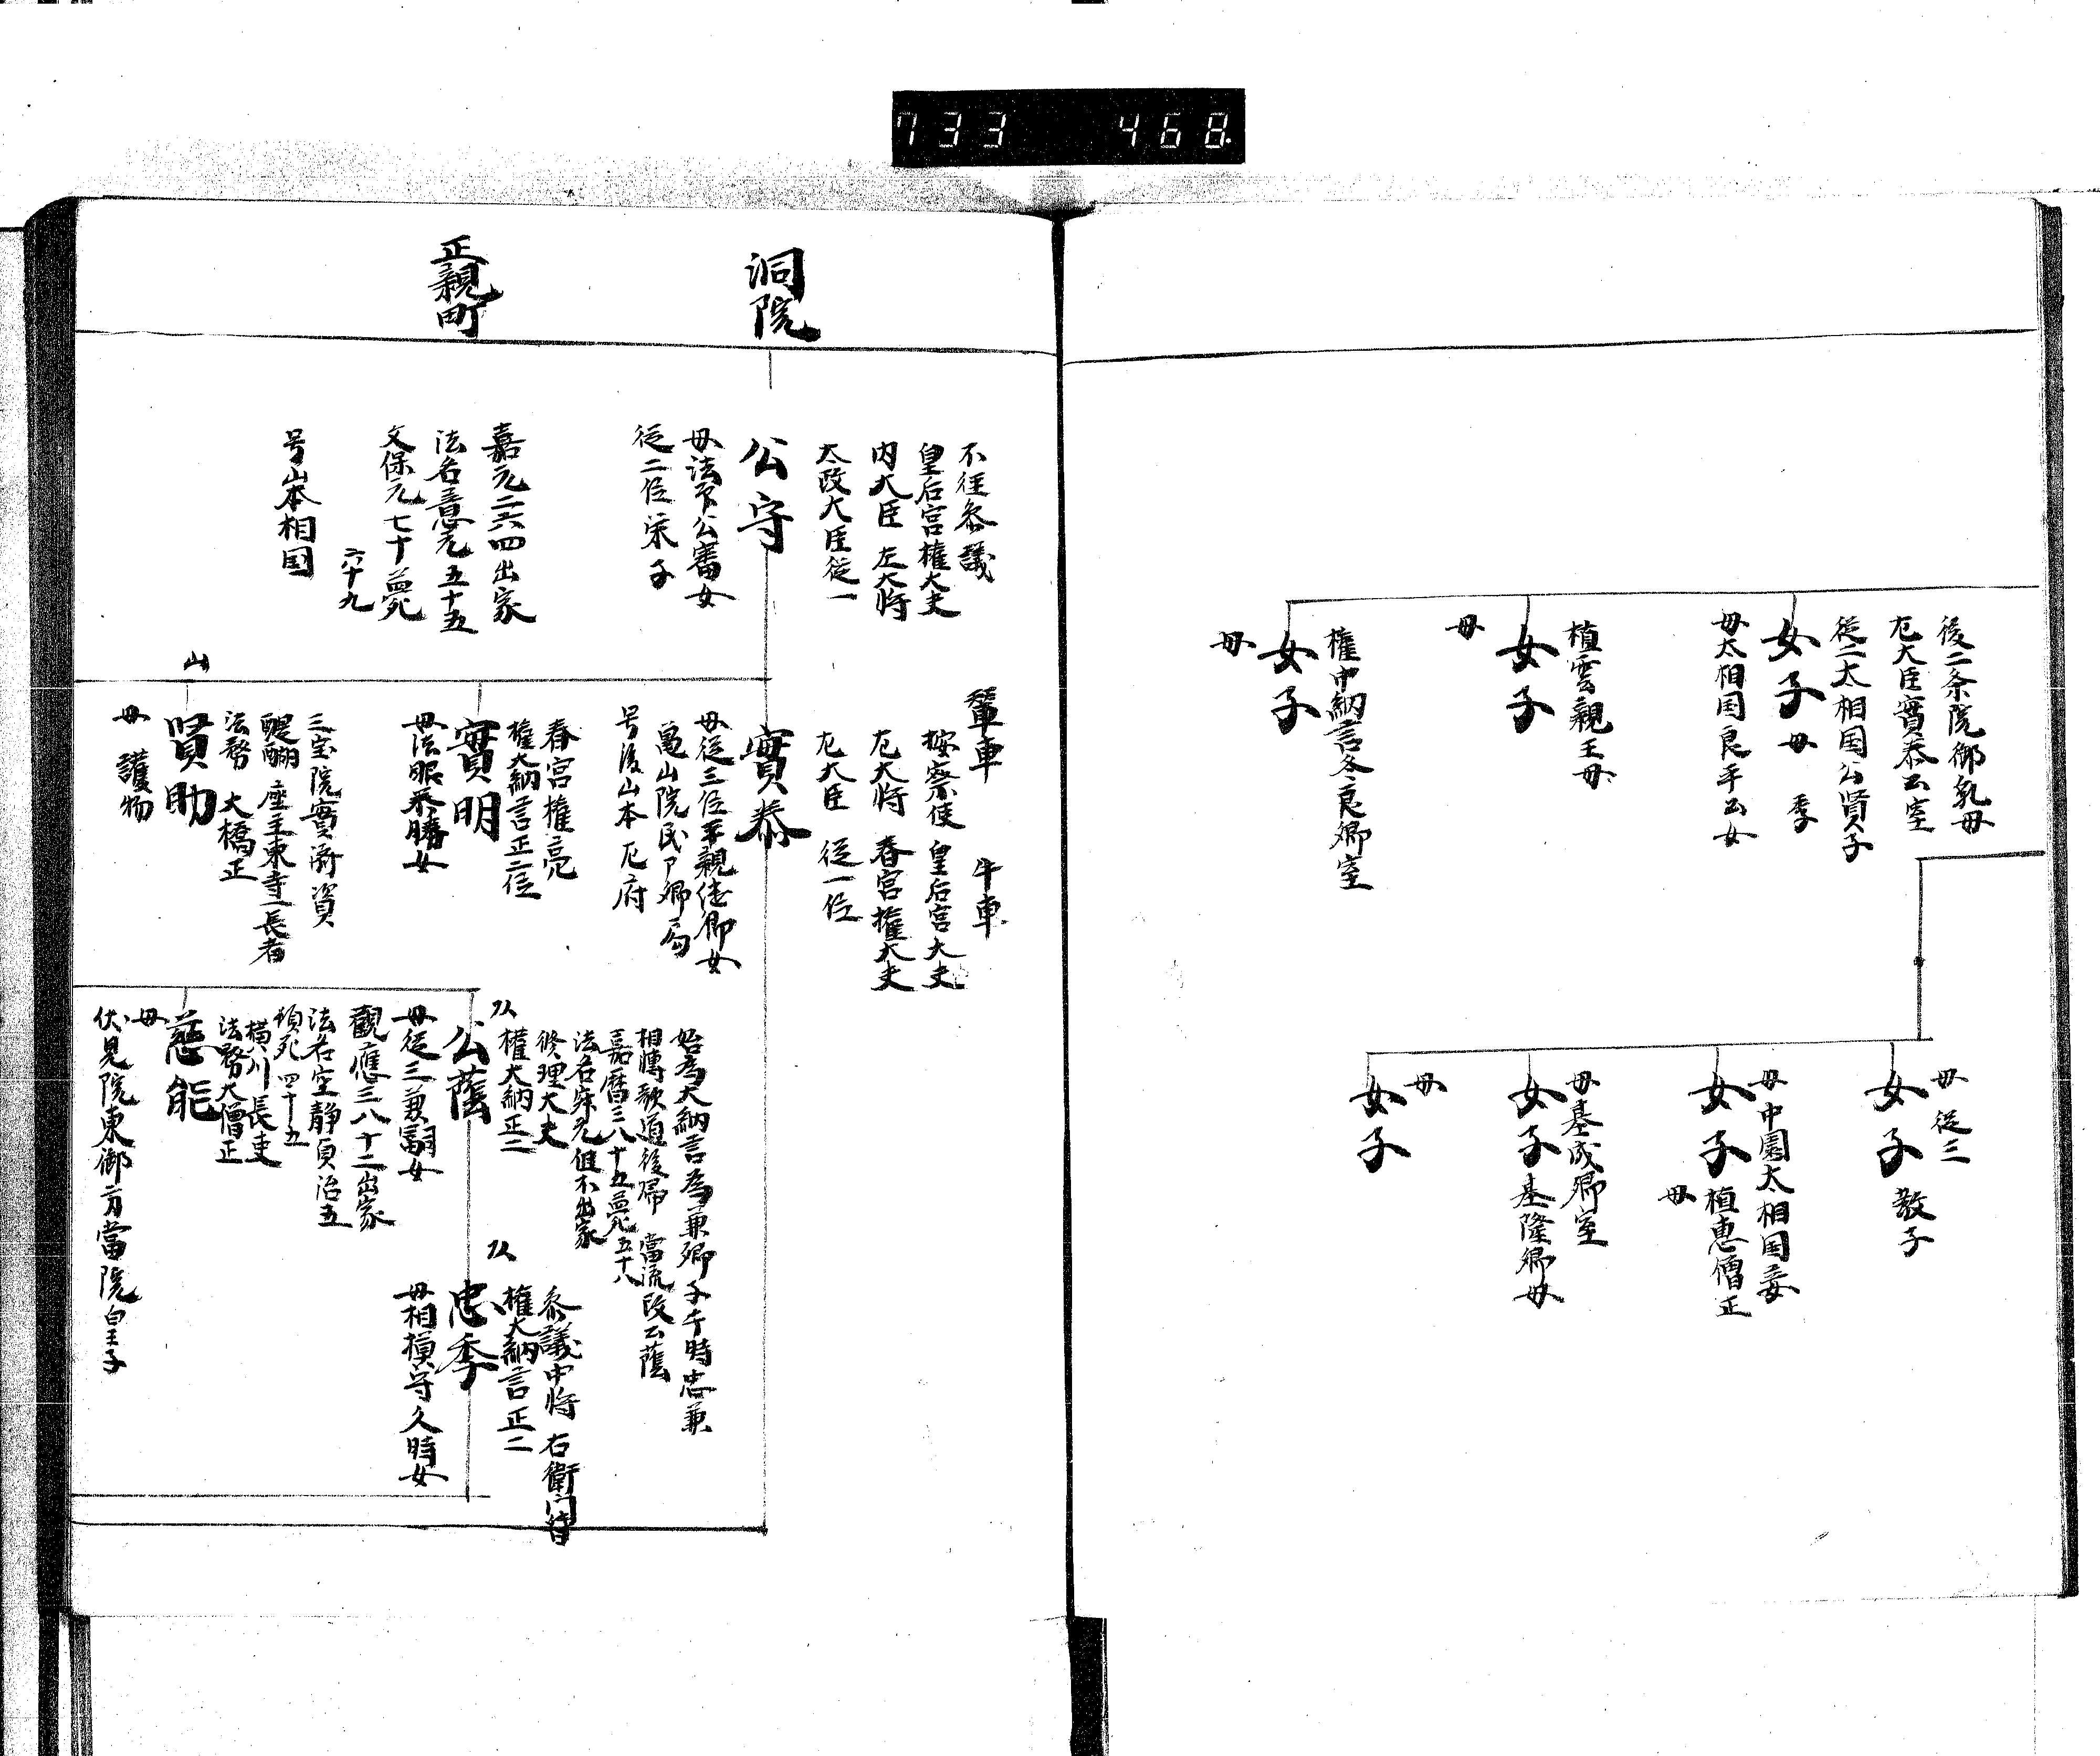 733 468
後二条院御乳母
左大臣實泰公室
従二太相国公賢子
女子 母 季
母太相国良平公女
植雲親王母
女子
母
權中納言冬良卿室
女子
母
母 従三
女子 教子
母中園太相国妾
女子 植恵僧正
母
母基成卿室
女子 基隆卿母
母
女子
洞院
正親町
不往参議
皇后宮權大夫
内大臣 左大将
太政大臣従一
公守
母法下公審女
従二位栄子
嘉元二六四出家
法名意元五十五
文保元七十薨
六十九
号山本相国
輦車 牛車
按察使 皇后宮大夫
左大将 春宮權大夫
左大臣 従一位
實泰
母従三位平親佳卿女
亀山院民卩卿局
号後山本左府
春宮權亮
權大納言正二位
實明
母法眼泰勝女
三宝院實済資
醍醐座主東寺一長者
法務 大僧正
山
賢助
母 護物
始為大納言為兼卿子于時忠兼
相傳歌道後帰當流改公蔭
嘉暦三八十五薨五十八
法名寂光但不出家
修理大夫
權大納正二
公蔭
母従三兼嗣女
觀應三八十二出家
法名空静貞治五
頓死四十五
参議中将 右衛門督
權大納言正二
忠季
母相模守久時女
横川長吏
法務大僧正
慈能
母
伏見院東御方當院皇子